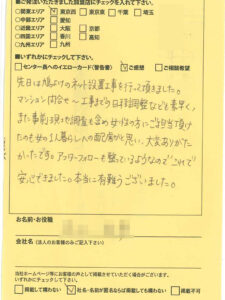 ■ご発注いただきました設置店にチェックを入れて下さい。
○関東エリア ☑東京西 □東京東 □千葉 □埼玉
○中部エリア □愛知
○近畿エリア □大阪 □京都
○四国エリア □香川 □高知
○九州エリア □九州
■いずれかにチェックして下さい。
□センター長へのイエローカード(警告書) ☑ご感想 □ご相談希望
先日は鳩よけのネット設置工事を行って頂きました。
マンション問合せ〜工事まで日程調整なども素早く、
また事前現地調査も含め女性の方にご担当頂け
たのも女の1人暮らし人の配慮かと思い、大変ありがた
かったです。アフターフォローも整っているようなのでこれで
安心できました。本当に有難うございました。
お名前・お役職
会社名(法人のお客様のみご記入下さい)
当社ホームページ等にお客様の声として掲載させていただく場合がございます。
いずれかにチェックして下さい。
□掲載可 ☑社名・名前が匿名ならば掲載しても構わない □掲載不可